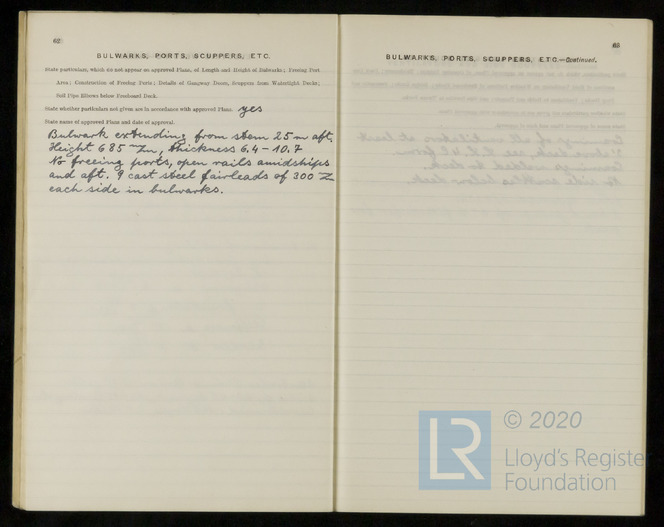 62
BULWARKS, PORTS, SCUPPERS, ETC.
State particulars, which do not appear on approved Plans, of Length and Height of Bulwarks; Freeing Port
Area; Construction of Freeing Ports; Details of Gangway Doors, Scuppers from Watertight Decks;
Soil Pipe Elbows below Freeboard Deck.
State whether particulars not given are in accordance with approved Plans. yes
State name of approved Plans and date of approval.
Bulwark extending from stem 25 m aft.
Height 685 m/m, thickness 6,4 - 10,7
No freeing ports, open rails amidships
and aft. 9 cast steel fairleads of 300
each side in bulwarks.
63
BULWARKS, PORTS, SCUPPERS, ETC.—Continued.
LR
© 2020
Lloyd's Register
Foundation